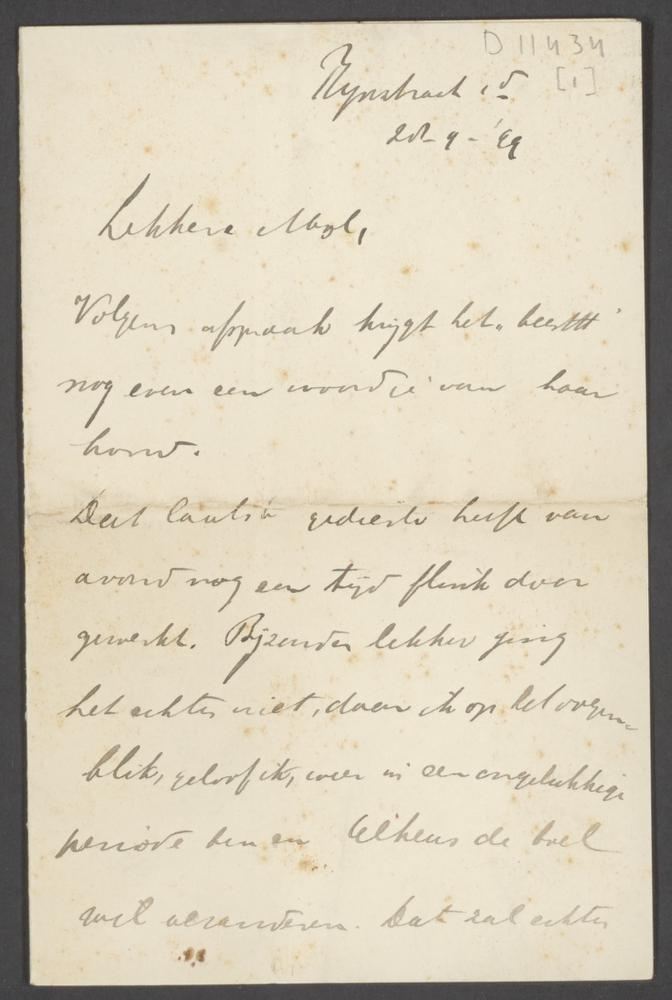 D 11434
[1]
Rynstraat
28-9-'99
Lekkere Mol,
Volgens afspraak krijgt het „beestttt"
nog even een woordje van haar
hond.
Dat laatste gedierte heeft van
avond nog een tijd flink door
gewerkt. Bijzonder lekker ging
het echter niet, daar ik op het oogen-
blik, geloof ik, weer in een ongelukkige
periode ben en telkens de boel
wil veranderen. Dat zal echter